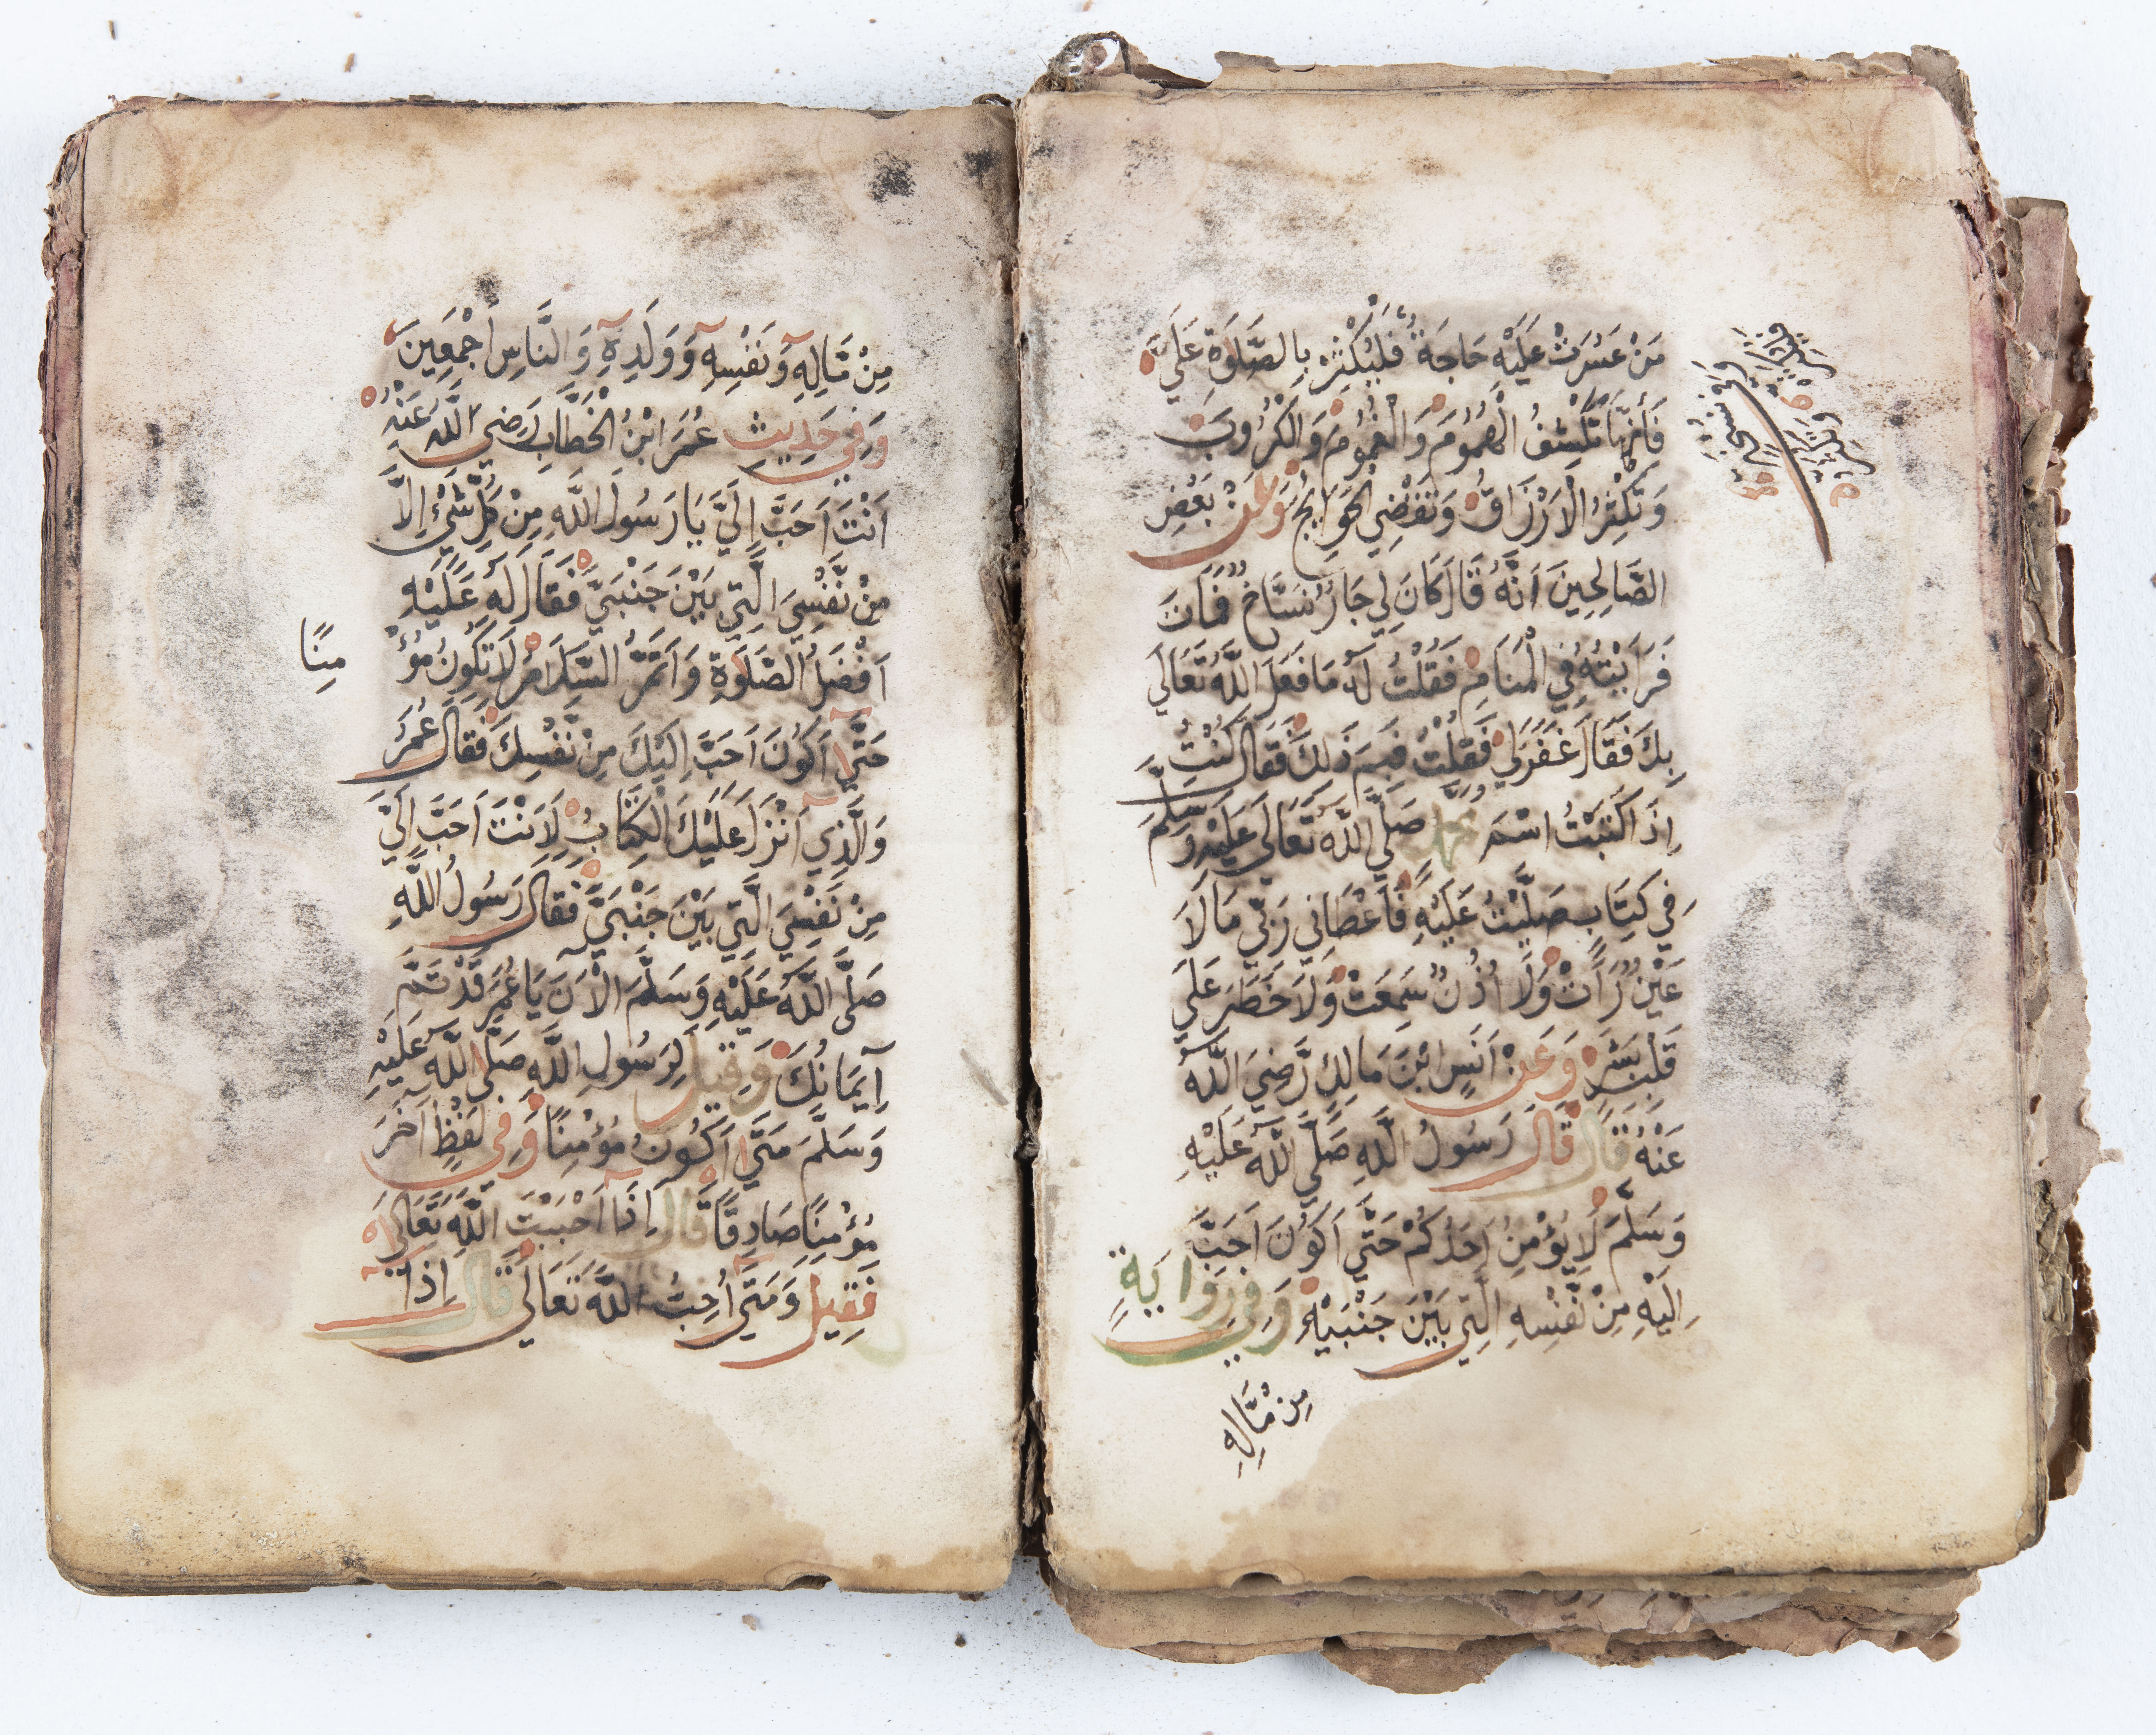 مَنْ عَسُرَتْ عَلَيْهِ حَاجَةٌ فَلْيُكْثِرْ بِالصَّلَوٰةِ عَلَيَّ
فَاِنَّهَا تَكْشِفُ الْهُمُومَ وَالْغُمُومَ وَالْكُرُوبَ
وَتُكْثِرُ الْاَرْزَاقَ وَتَقْضِي الْحَوَايِجَ وَعَنْ بَعْضِ
الصَّالِحِينَ اَنَّهُ قَالَ كَانَ لِي جَارٌ نَسَّاخٌ فَمَاتَ
فَرَاَيْتُهُ فِي الْمَنَامِ فَقُلْتُ لَهُ مَا فَعَلَ اللَّهُ تَعَالَى
بِكَ فَقَالَ غَفَرَلِي فَقُلْتُ فَبِمَ ذَلِكَ فَقَالَ كُنْتُ
اِذَا كَتَبْتُ اسْمَ مُحَمَّدٍ صَلَّى اللَّهُ تَعَالَى عَلَيْهِ وَسَلَّمَ
فِي كِتَابٍ صَلَّيْتُ عَلَيْهِ فَاَعْطَانِي رَبِّي مَا لَا
عَيْنٌ رَاَتْ وَلَا اُذُنٌ سَمِعَتْ وَلَا خَطَرَ عَلَى
قَلْبِ بَشَرٍ وَعَنْ اَنَسِ ابْنِ مَالِكٍ رَّضِيَ اللَّهُ
عَنْهُ قَالَ قَالَ رَسُولُ اللَّهِ صَلَّى اللَّهُ عَلَيْهِ
وَسَلَّمَ لَا يُؤْمِنُ اَحَدُكُمْ حَتَّى اَكُونَ اَحَبَّ
اِلَيْهِ مِنْ نَّفْسِهِ الَّتِي بَيْنَ جَنْبَيْهِ وَفِي رِوَايَةٍ
مِنْ مَّالِهِ
مِنْ مَّالِهِ وَنَفْسِهِ وَوَلَدِهِ وَالنَّاسِ اَجْمَعِينَ
وَفِي حَدِيثِ عُمَرَ ابْنُ الْخَطَّابِ رَضِيَ اللَّهُ عَنْهُ
اَنْتَ اَحَبُّ اِلَيَّ يَا رَسُولَ اللَّهِ مِنْ كُلِّ شَيْءٍ اِلَّا
مِنْ نَّفْسِيَ الَّتِي بَيْنَ جَنْبَيَّ فَقَالَ لَهُ عَلَيْهِ
اَفْضَلُ الصَّلَوٰةِ وَاَتَمُّ السَّلَامِ لَا تَكُونُ مُؤْ
مِنًا
حَتَّى اَكُونَ اَحَبَّ اِلَيْكَ مِنْ نَّفْسِكَ فَقَالَ عُمَرُ
وَالَّذِي اَنْزَلَ عَلَيْكَ الْكِتَابَ لَاَنْتَ اَحَبُّ اِلَيَّ
مِنْ نَفْسِيَ الَّتِي بَيْنَ جَنْبَيَّ فَقَالَ رَسُولُ اللَّهِ
صَلَّى اللَّهُ عَلَيْهِ وَسَلَّمَ الْاٰنَ يَا عُمَرُ قَدْ تَمَّ
اِيمَانُكَ وَقِيلَ لِرَسُولِ اللَّهِ صَلَّى اللَّهُ عَلَيْهِ
وَسَلَّمَ مَتَى اَكُونُ مُؤْمِنًا وَفِي لَفْظٍ اٰخَرَ
مُؤْمِنًا صَادِقًا قَالَ اِذَا اَحْبَبْتَ اللَّهَ تَعَالَى
فَقِيلَ وَمَتَى اُحِبُّ اللَّهَ تَعَالَى قَالَ اِذَا